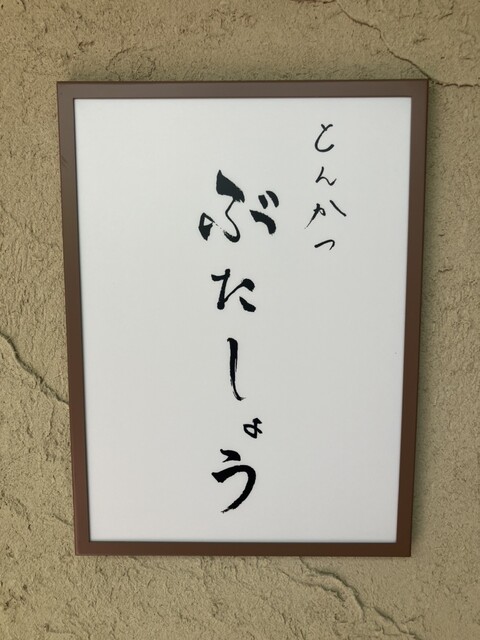 とんかつ
ぶたしょう